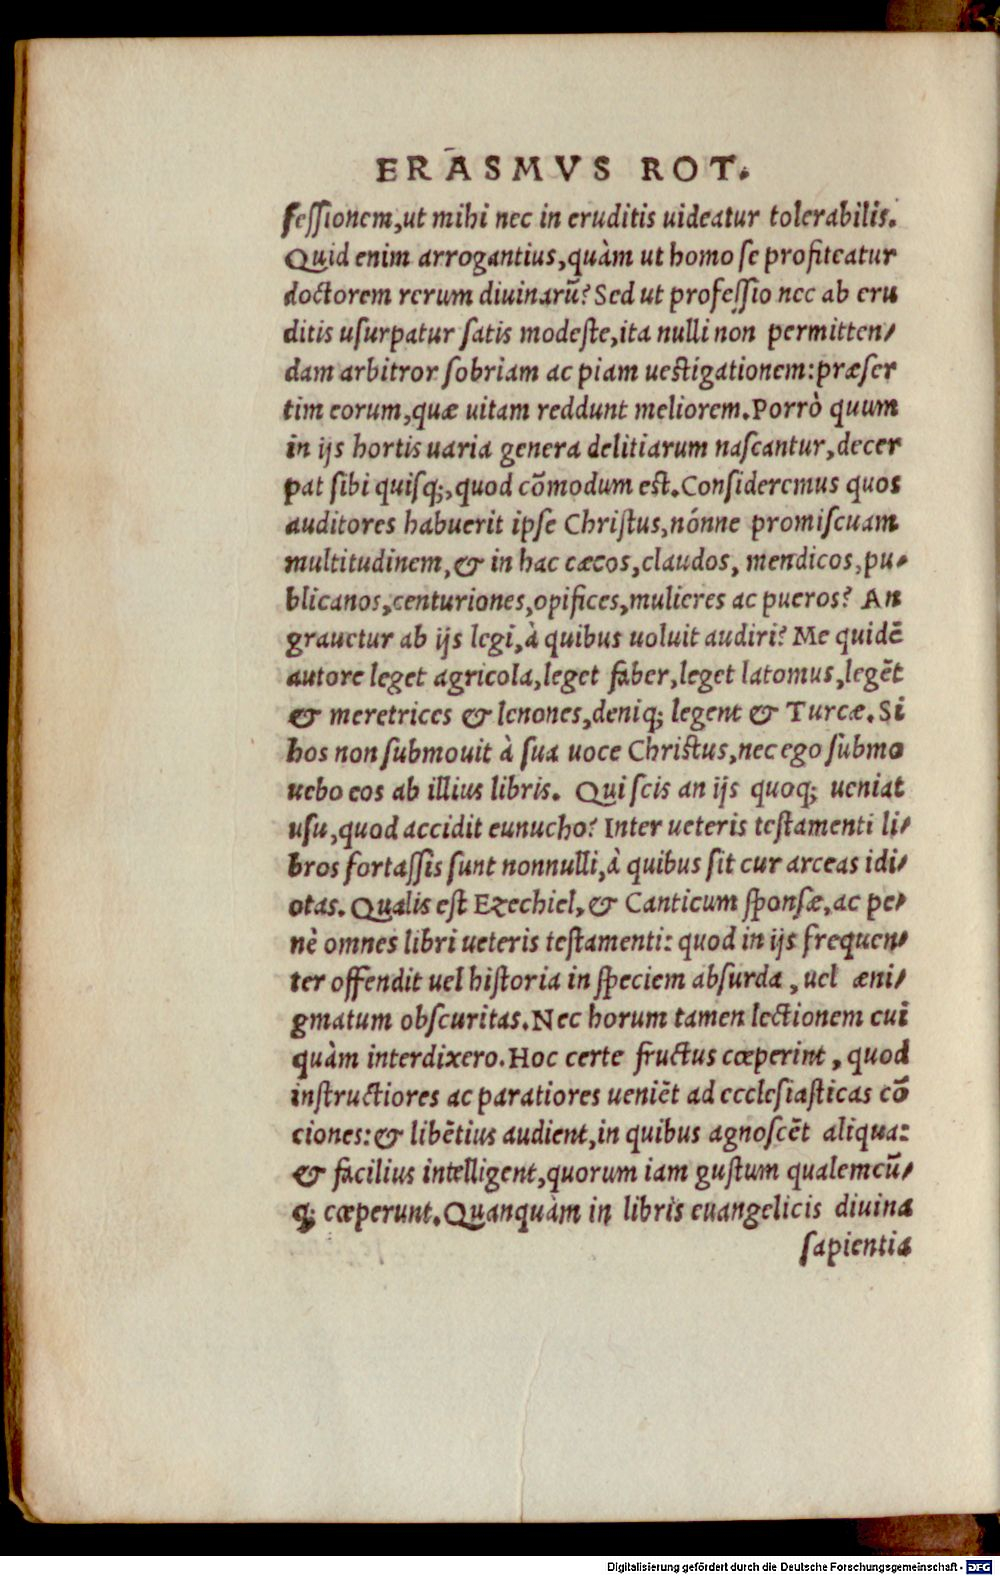 ERASMVS ROT.
fessionem, ut mihi nec in eruditis uideatur tolerabilis.
Quid enim arrogantius, quàm ut homo se profiteatur
doctorem rerum diuinarũ? Sed ut professio nec ab eru
ditis usurpatur satis modeste, ita nulli non permitten-
dam arbitror sobriam ac piam uestigationem: præser
tim eorum, quæ uitam reddunt meliorem. Porrò quum
in ijs hortis uaria genera delitiarum nascantur, decer
pat sibi quisq;, quod cõmodum est. Consideremus quos
auditores habuerit ipse Christus, nónne promiscuam
multitudinem, & in hac cæcos, claudos, mendicos, pu-
blicanos, centuriones, opifices, mulieres ac pueros? An
grauetur ab ijs legi, à quibus uoluit audiri? Me quidẽ
autore leget agricola, leget faber, leget latomus, legẽt
& meretrices & lenones, deniq; legent & Turcæ. Si
hos non submouit à sua uoce Christus, nec ego submo
uebo eos ab illius libris. Qui scis an ijs quoq; ueniat
usu, quod accidit eunucho? Inter ueteris testamenti li-
bros fortassis sunt nonnulli, à quibus sit cur arceas idi-
otas. Qualis est Ezechiel, & Canticum sponsæ, ac pe-
nè omnes libri ueteris testamenti: quod in ijs frequen-
ter offendit uel historia in speciem absurda, uel æni-
gmatum obscuritas. Nec horum tamen lectionem cui
quàm interdixero. Hoc certe fructus cœperint, quod
instructiores ac paratiores ueniẽt ad ecclesiasticas cõ
ciones: & libẽtius audient, in quibus agnoscẽt aliqua:
& facilius intelligent, quorum iam gustum qualemcũ-
q; cœperunt. Quanquàm in libris euangelicis diuina
sapientia
Digitalisierung gefördert durch die Deutsche Forschungsgemeinschaft - DFG